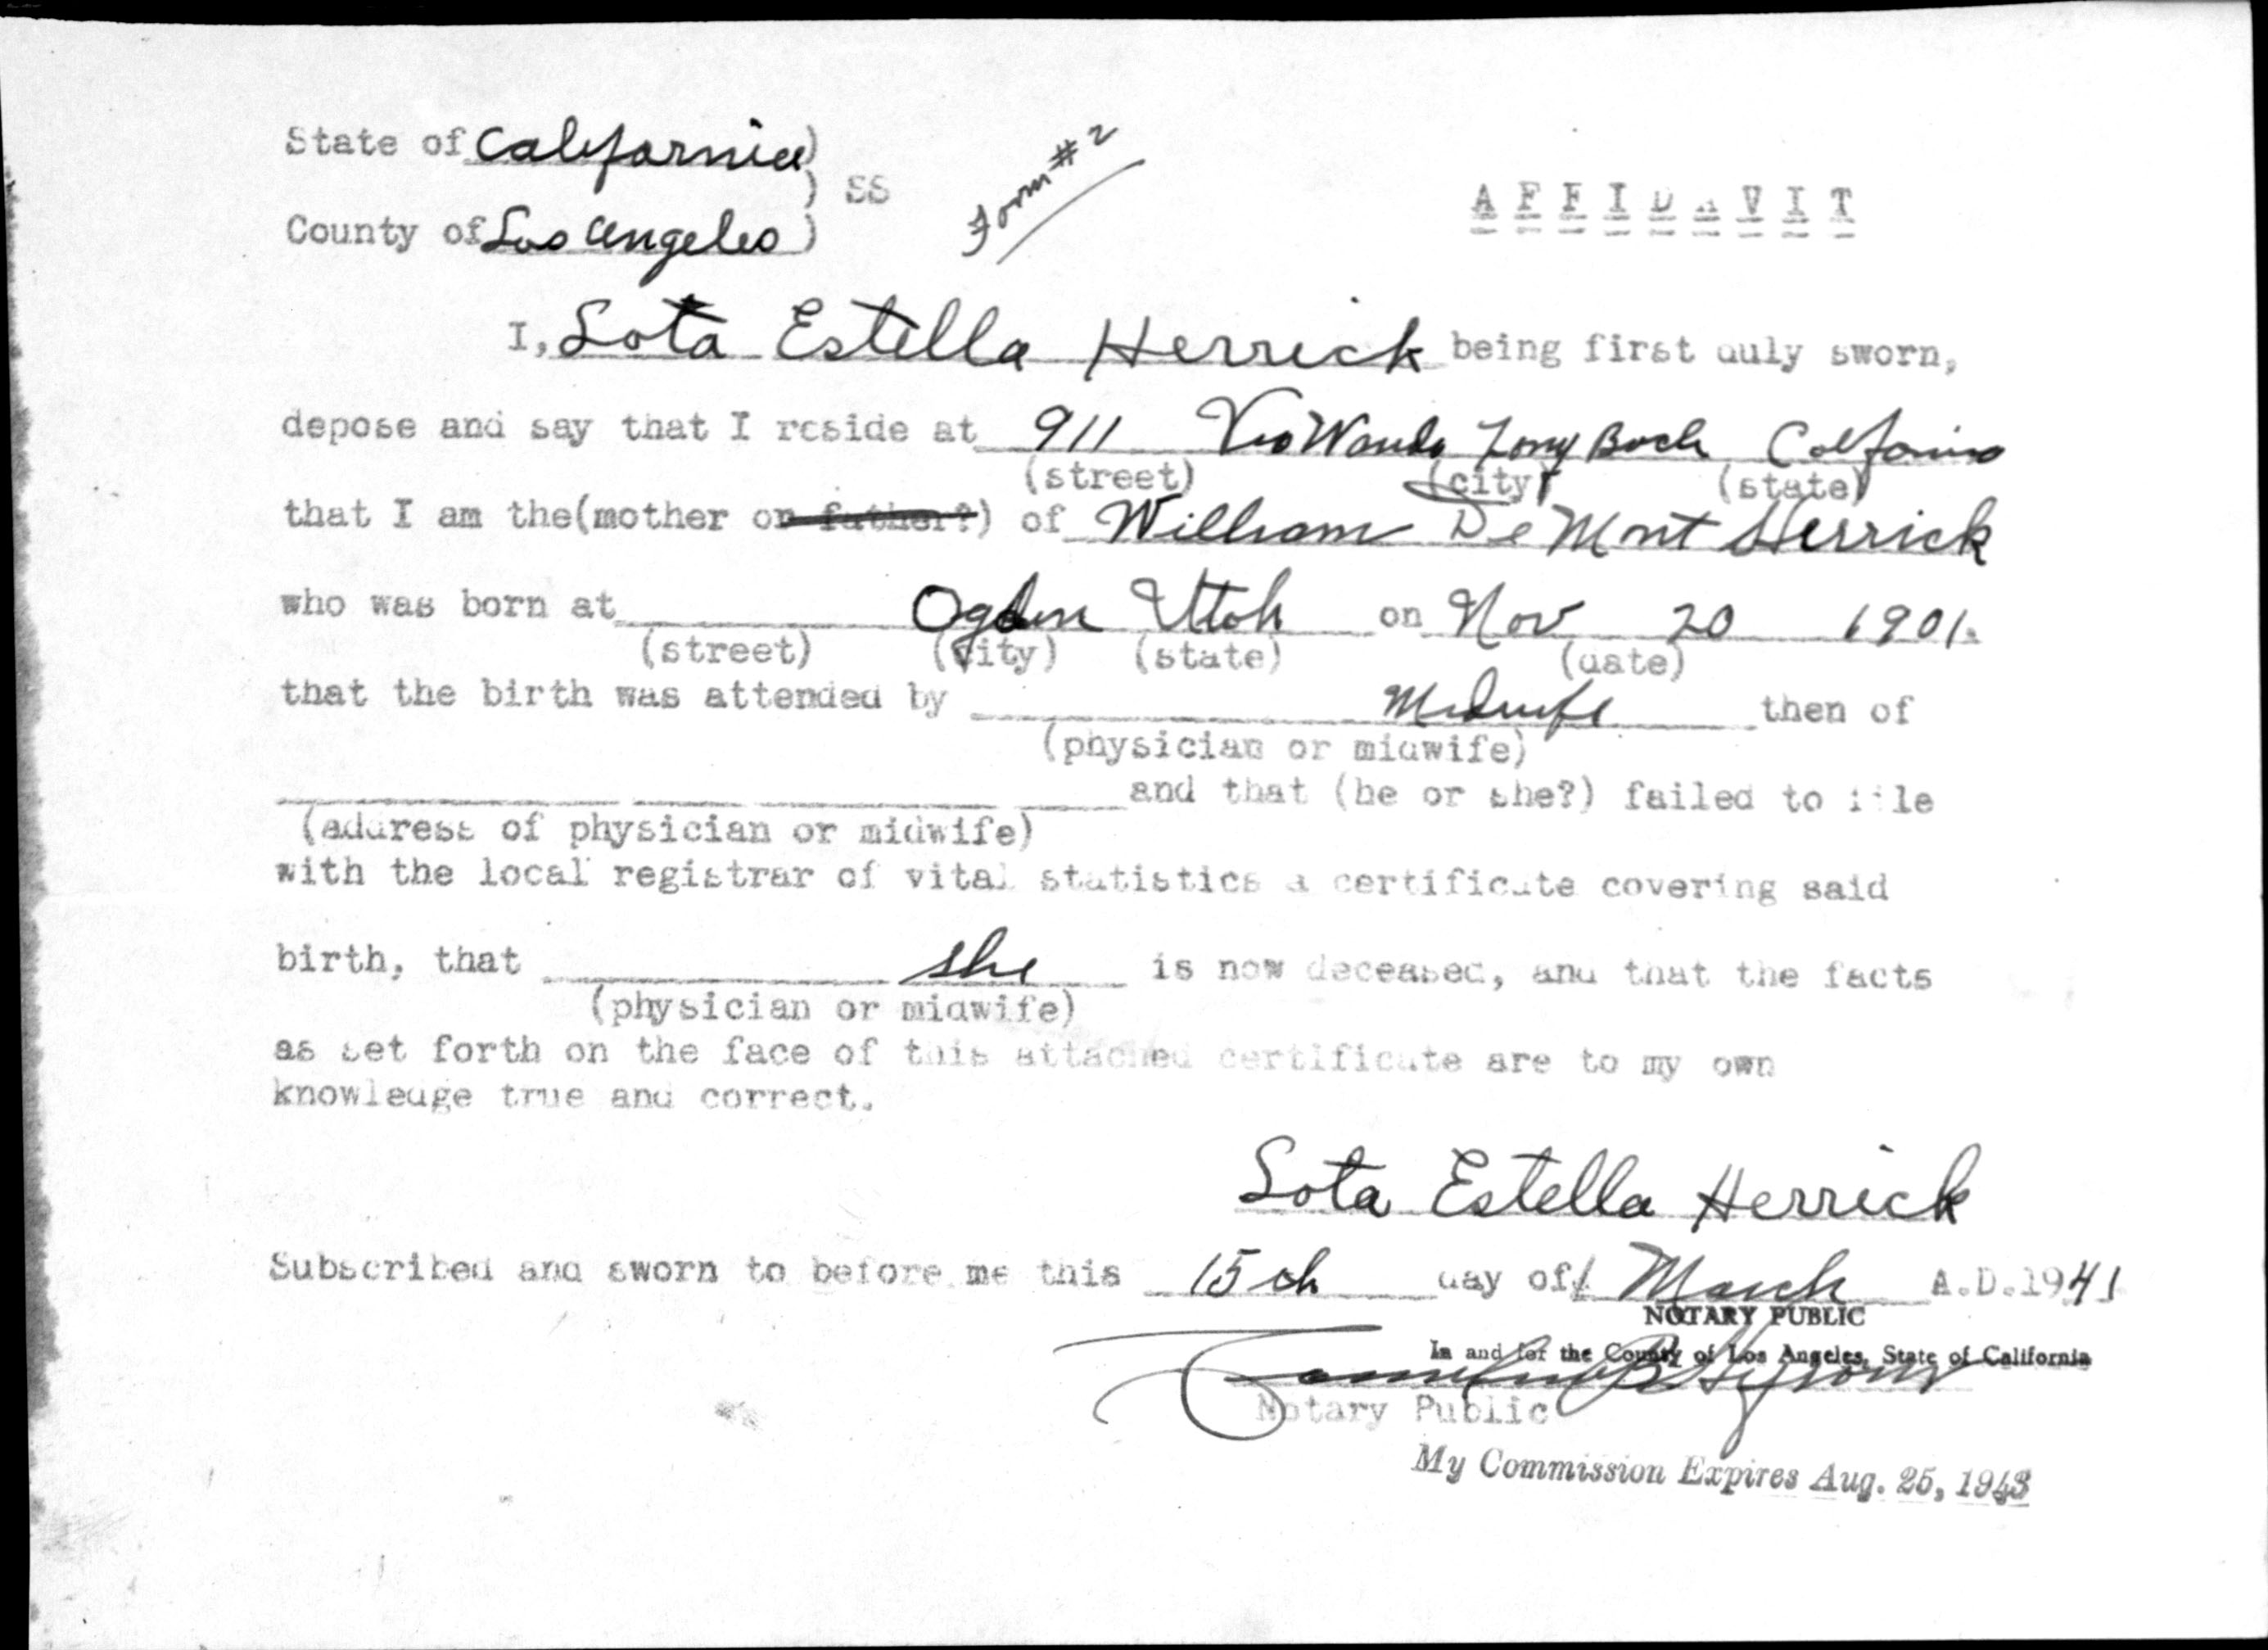 State of California)
) SS
County of Los Angeles)
Form #2
AFFIDAVIT
I, Lota Estella Herrick being first duly sworn,
depose and say that I reside at 911 Via Wanda Long Bach California
(street) (city) (state)
that I am the(mother or father?) of William De Mont Herrick
who was born at Ogden Utah on Nov 20 1901.
(street) (city) (state) (date)
that the birth was attended by Midwife then of
(physician or midwife)
and that (he or she?) failed to file
(address of physician or midwife)
with the local registrar of vital statistics a certificate covering said
birth, that she is now deceased, and that the facts
(physician or midwife)
as set forth on the face of this attached certificate are to my own
knowledge true and correct.
Lota Estella Herrick
Subscribed and sworn to before me this 15th day of March A.D.1941
NOTARY PUBLIC
In and for the County of Los Angeles, State of California
Notary Public
My Commission Expires Aug. 25, 1943